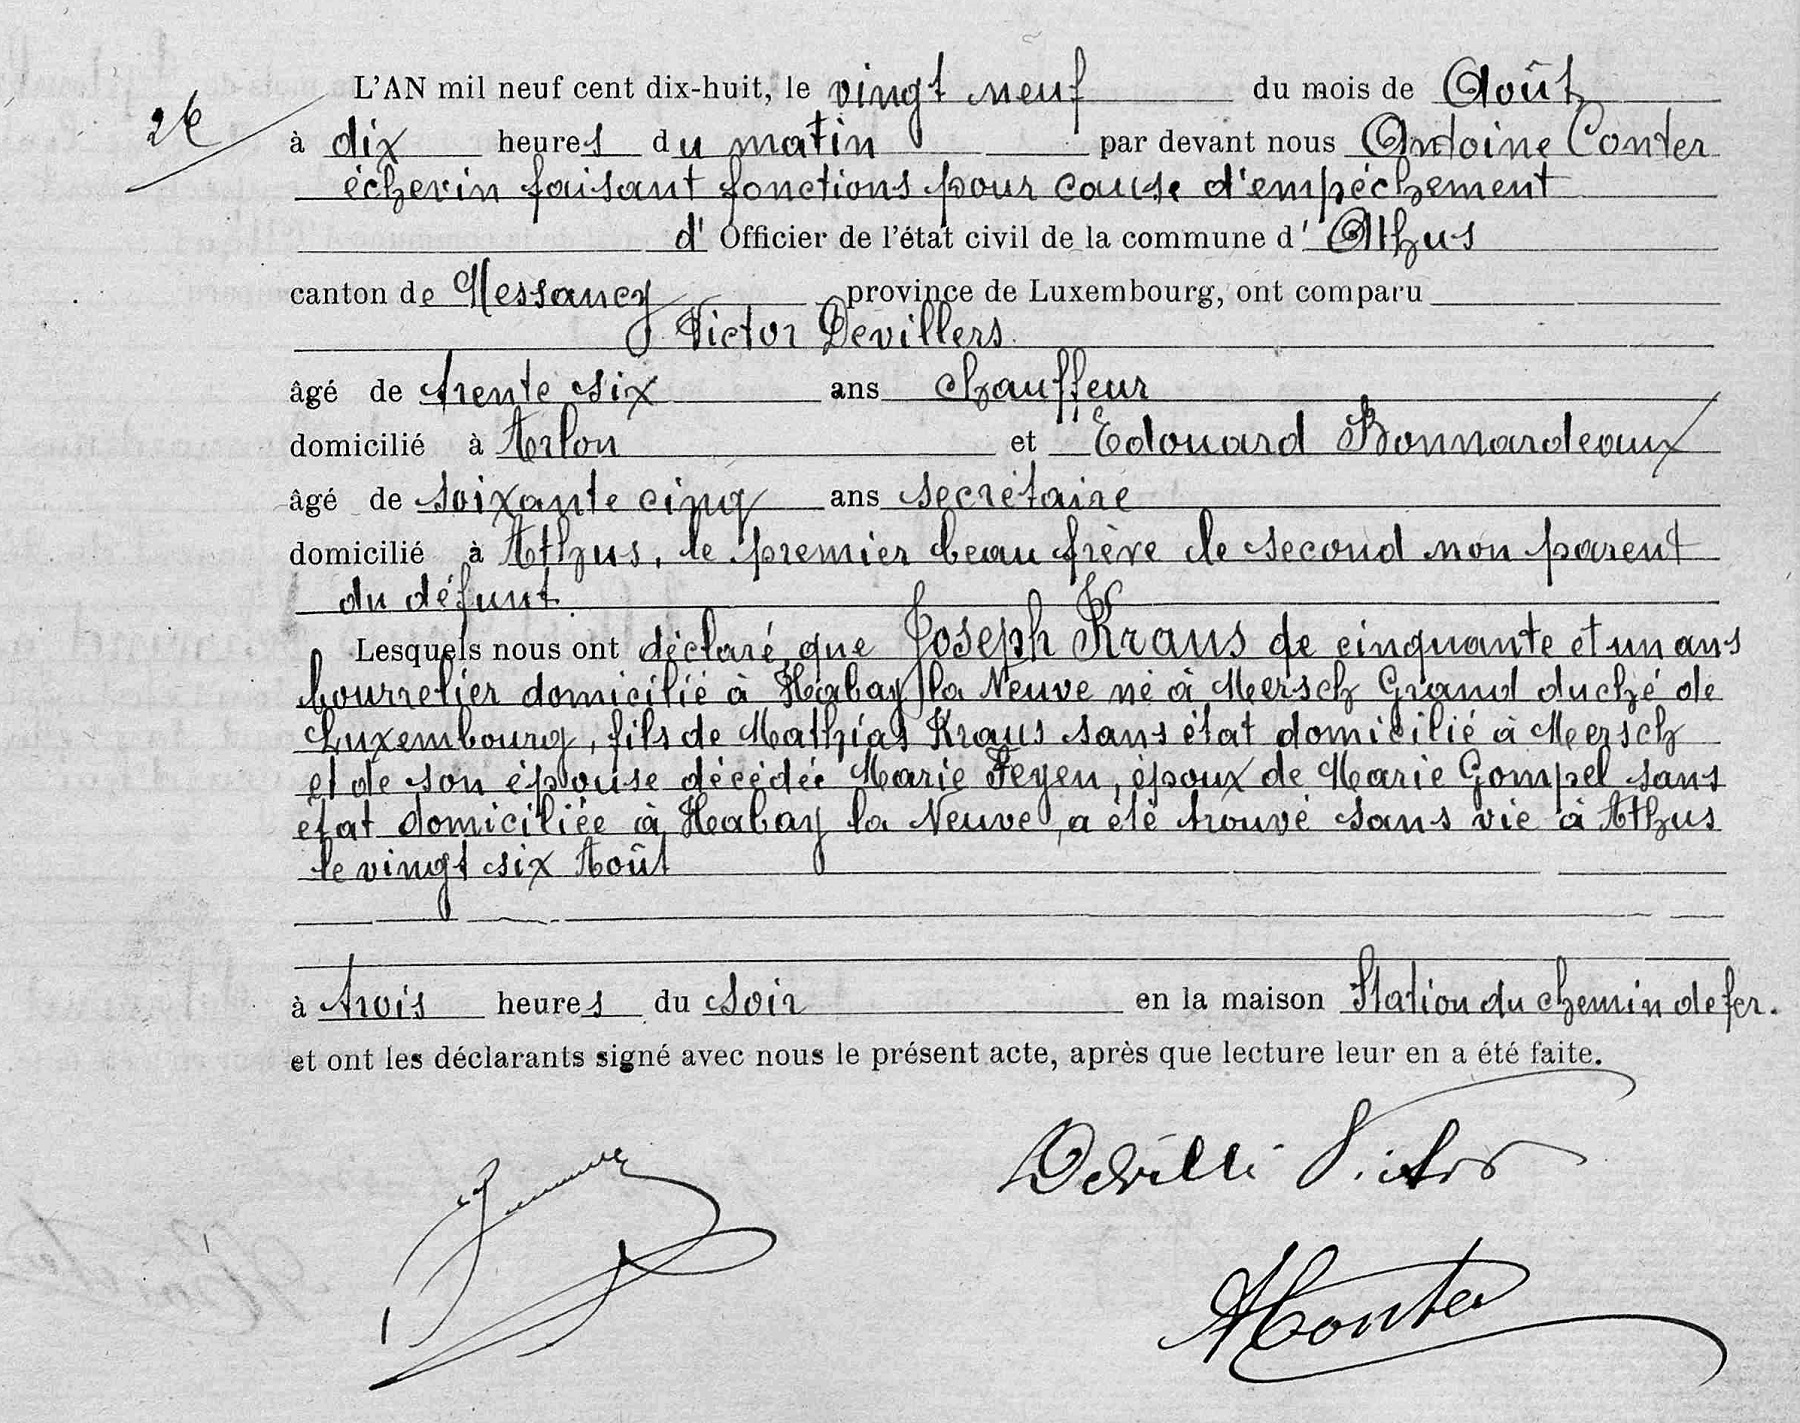 26
L'AN mil neuf cent dix-huit, le vingt neuf du mois de Août
à dix heures du matin par devant nous Antoine Conter
échevin faisant fonctions pour cause d'empéchement
d' Officier de l'état civil de la commune d' Athus
canton de Messancy province de Luxembourg, ont comparu
Victor Devillers
âgé de trente six ans chauffeur
domicilié à Arlon et Edouard Bonnardeaux
âgé de soixante cinq ans secrétaire
domicilié à Athus, le premier beau frère le second non parent
du défunt.
Lesquels nous ont déclaré que Joseph Kraus de cinquante et un ans
bourrelier domicilié à Habay la Neuve né à Mersch Grand duché de
Luxembourg, fils de Mathias Kraus sans état domicilié à Mersch
et de son épouse décédée Marie Feyen, époux de Marie Gompel sans
état domiciliée à Habay la Neuve, a été trouvé sans vie à Athus
le vingt six Août
à trois heures du soir en la maison Station du chemin de fer.
et ont les déclarants signé avec nous le présent acte, après que lecture leur en a été faite.
Victor
AConter